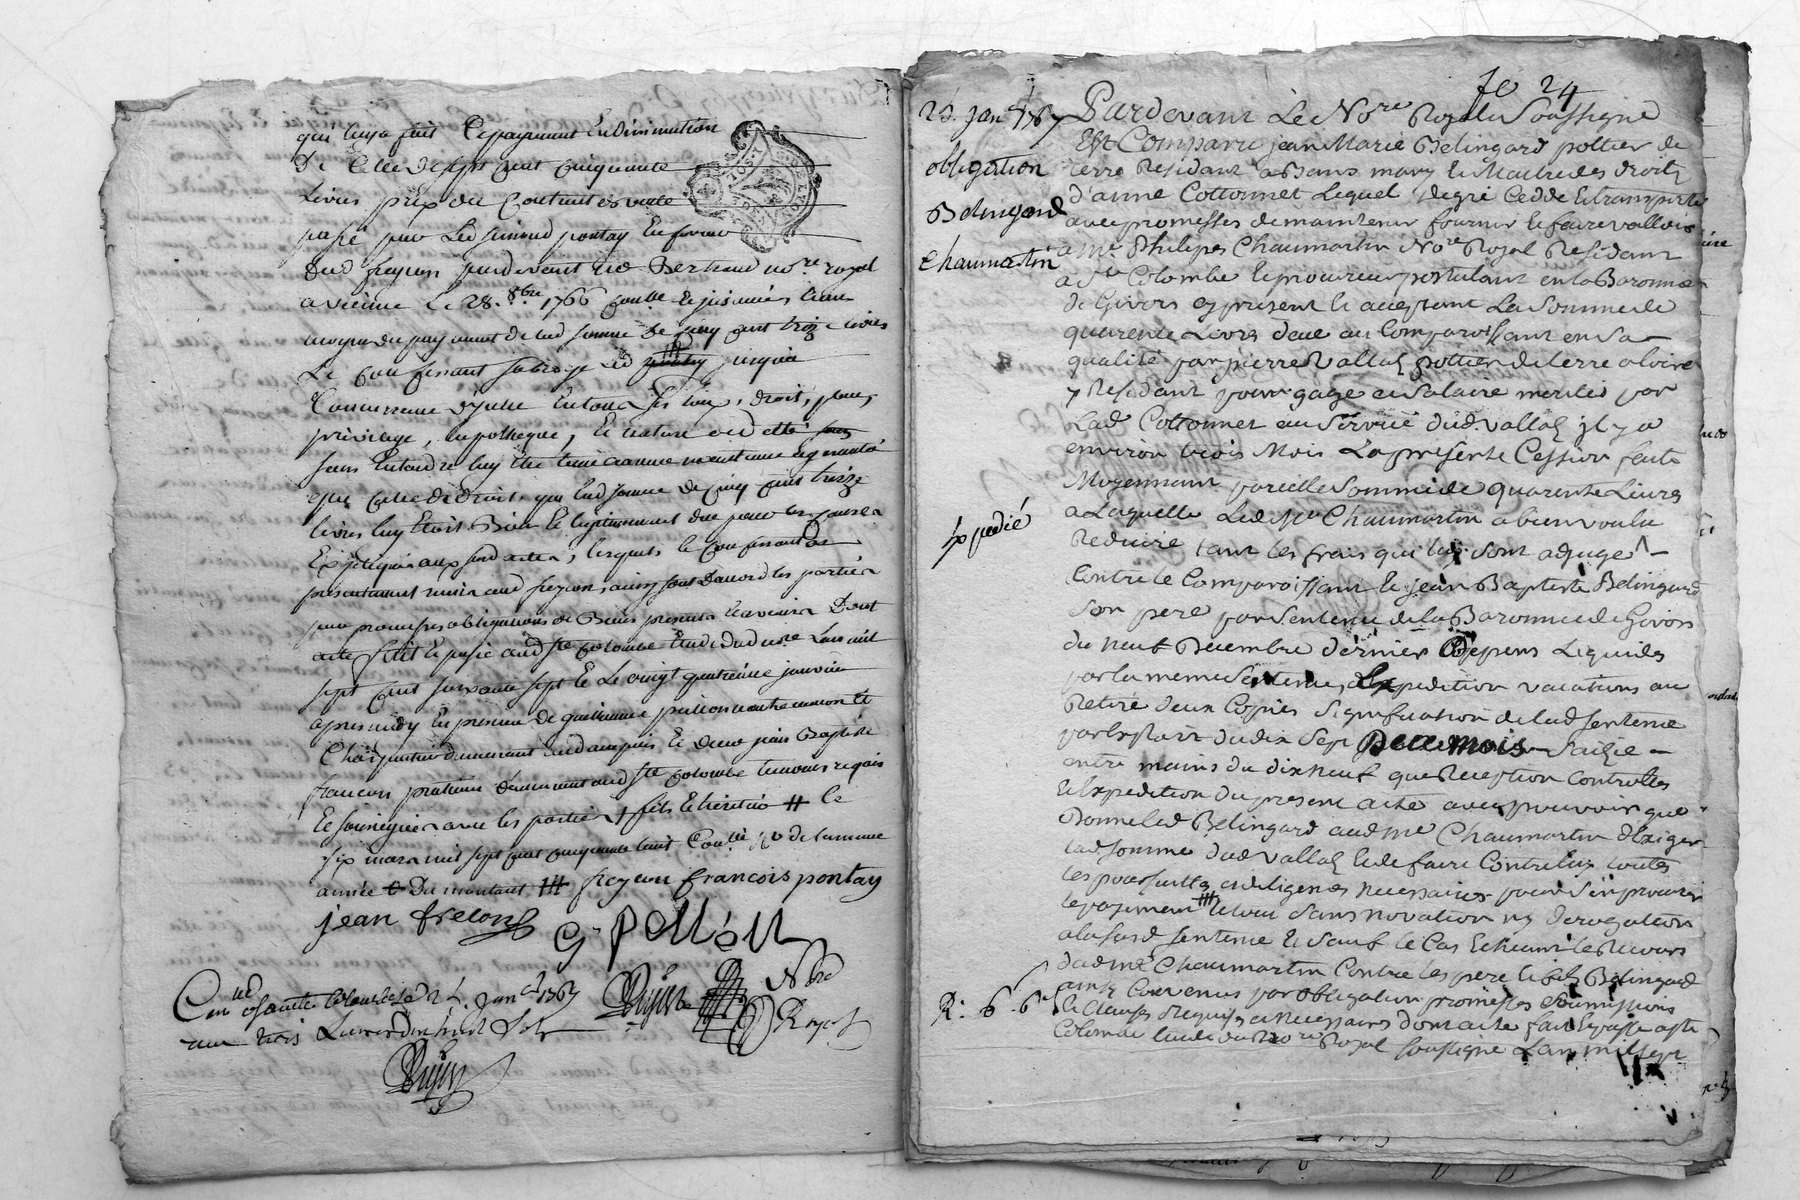 qui luy a fait Ce payement En diminution
De Celle De sept cent Cinquante
Livres prix du Contrait de vente
passé par Led pontay
Dud freyron pardevant me Bertrand no.re royal
a vienne Le 28. 8bre 1766
moyen du payement de lad somme De Cinq cent treize livres
Le Confessant subroge Led jusqu'a
Concurrence D'jcelle En tous ses lieux, Droit, place,
privilege, hypotheque, Et nature de dette
sans Entendre luy
que celle De Droit, que lad somme De Cinq cent treize
livres luy Etoit Bien Et legitimement due pour les causes
aux susd actes, lesquels le Confessant a
presentement remis aud freyron, ainsy sont D'accord les parties
par promesses obligations de Biens presents Et avenir Dont
acte fait Et passé aud ste colombe Etude dud no.re L'an mil
sept cent soixante sept Et Le vingt quatrieme janvier
apres midy En presence De guillaume pellion maitre
Charpentier demeurant Et De sieur jean Baptiste
francon praticien Demeurant aud ste Colombe temoins requis
Et soussignés avec les parties + fils Et heritier # le
six mars mil sept cent cinquante huit Con.lé de la meme
année Du montant freyron francois pontay
jean frelon
G. Pellion
N.re
Royal
Con.lé a sainte Colombe Le 24. Janv.er 1767
trois Livres dix huit Sols
fo 24
23. Janv. 1767
obligation
Belingard
Chaumartin
Expedié
R. 6. 6s
Pardevant Le No.re Royal Soussigné
Est Comparu jean Marie Belingard pottier de
terre Residant a mary Et Maitre des droits
d'anne Cottonnet Lequel degré Cedde Et transporte
avec promesses de maintenir fournir Et faire valloir
a Me. Philipes Chaumartin No.re Royal Residant
a Ste Colombe Et procureur postulant en la Baronnie
de Givors cy present Et acceptant La Somme de
quarente Livres deue au Comparoissant en Sa
qualité par pierre Vallas pottier de terre a loire
y Residant pour gage et Salaire merités par
Lad Cottonnet au Service dud. Vallas jl y a
environ trois Mois La presente Cession faite
Moyennant pareille Somme de quarente Livres
a Laquelle Led Me Chaumartin a bien voulu
Reduire tant les frais qui luy sont adjugé
Contre le Comparoissant Et jean Baptiste Belingard
Son pere par Sentence de la Baronnie de Givors
du neuf Decembre dernier Depens Liquides
par la meme Sentence, Expedition vacations au
Retiré deux Copies Signification de lad Sentence
par Exploit du dix Sept Dece mois Saizie
entre mains du dix neuf que Reception Controlles
Et Expedition du present acte avec pouvoir que
Donne Led Belingard aud me Chaumartin d'Exiger
lad somme dud Vallas Et de faire Contre luy toutes
les poursuittes et diligences necessaires pour S'en procurer
le payement Le tout Sans novation ny derogation
a la susd Sentence Et Sauf le Cas Echeant le Recours
dud me Chaumartin Contre les pere Et fils Belingard
ainsy Convenus par obligation promesses Soumissions
Et Clauses Requises et necessaires dont acte fait Et passé a Ste
Colombe Etude du No.re Royal Soussigné L'an mil sept